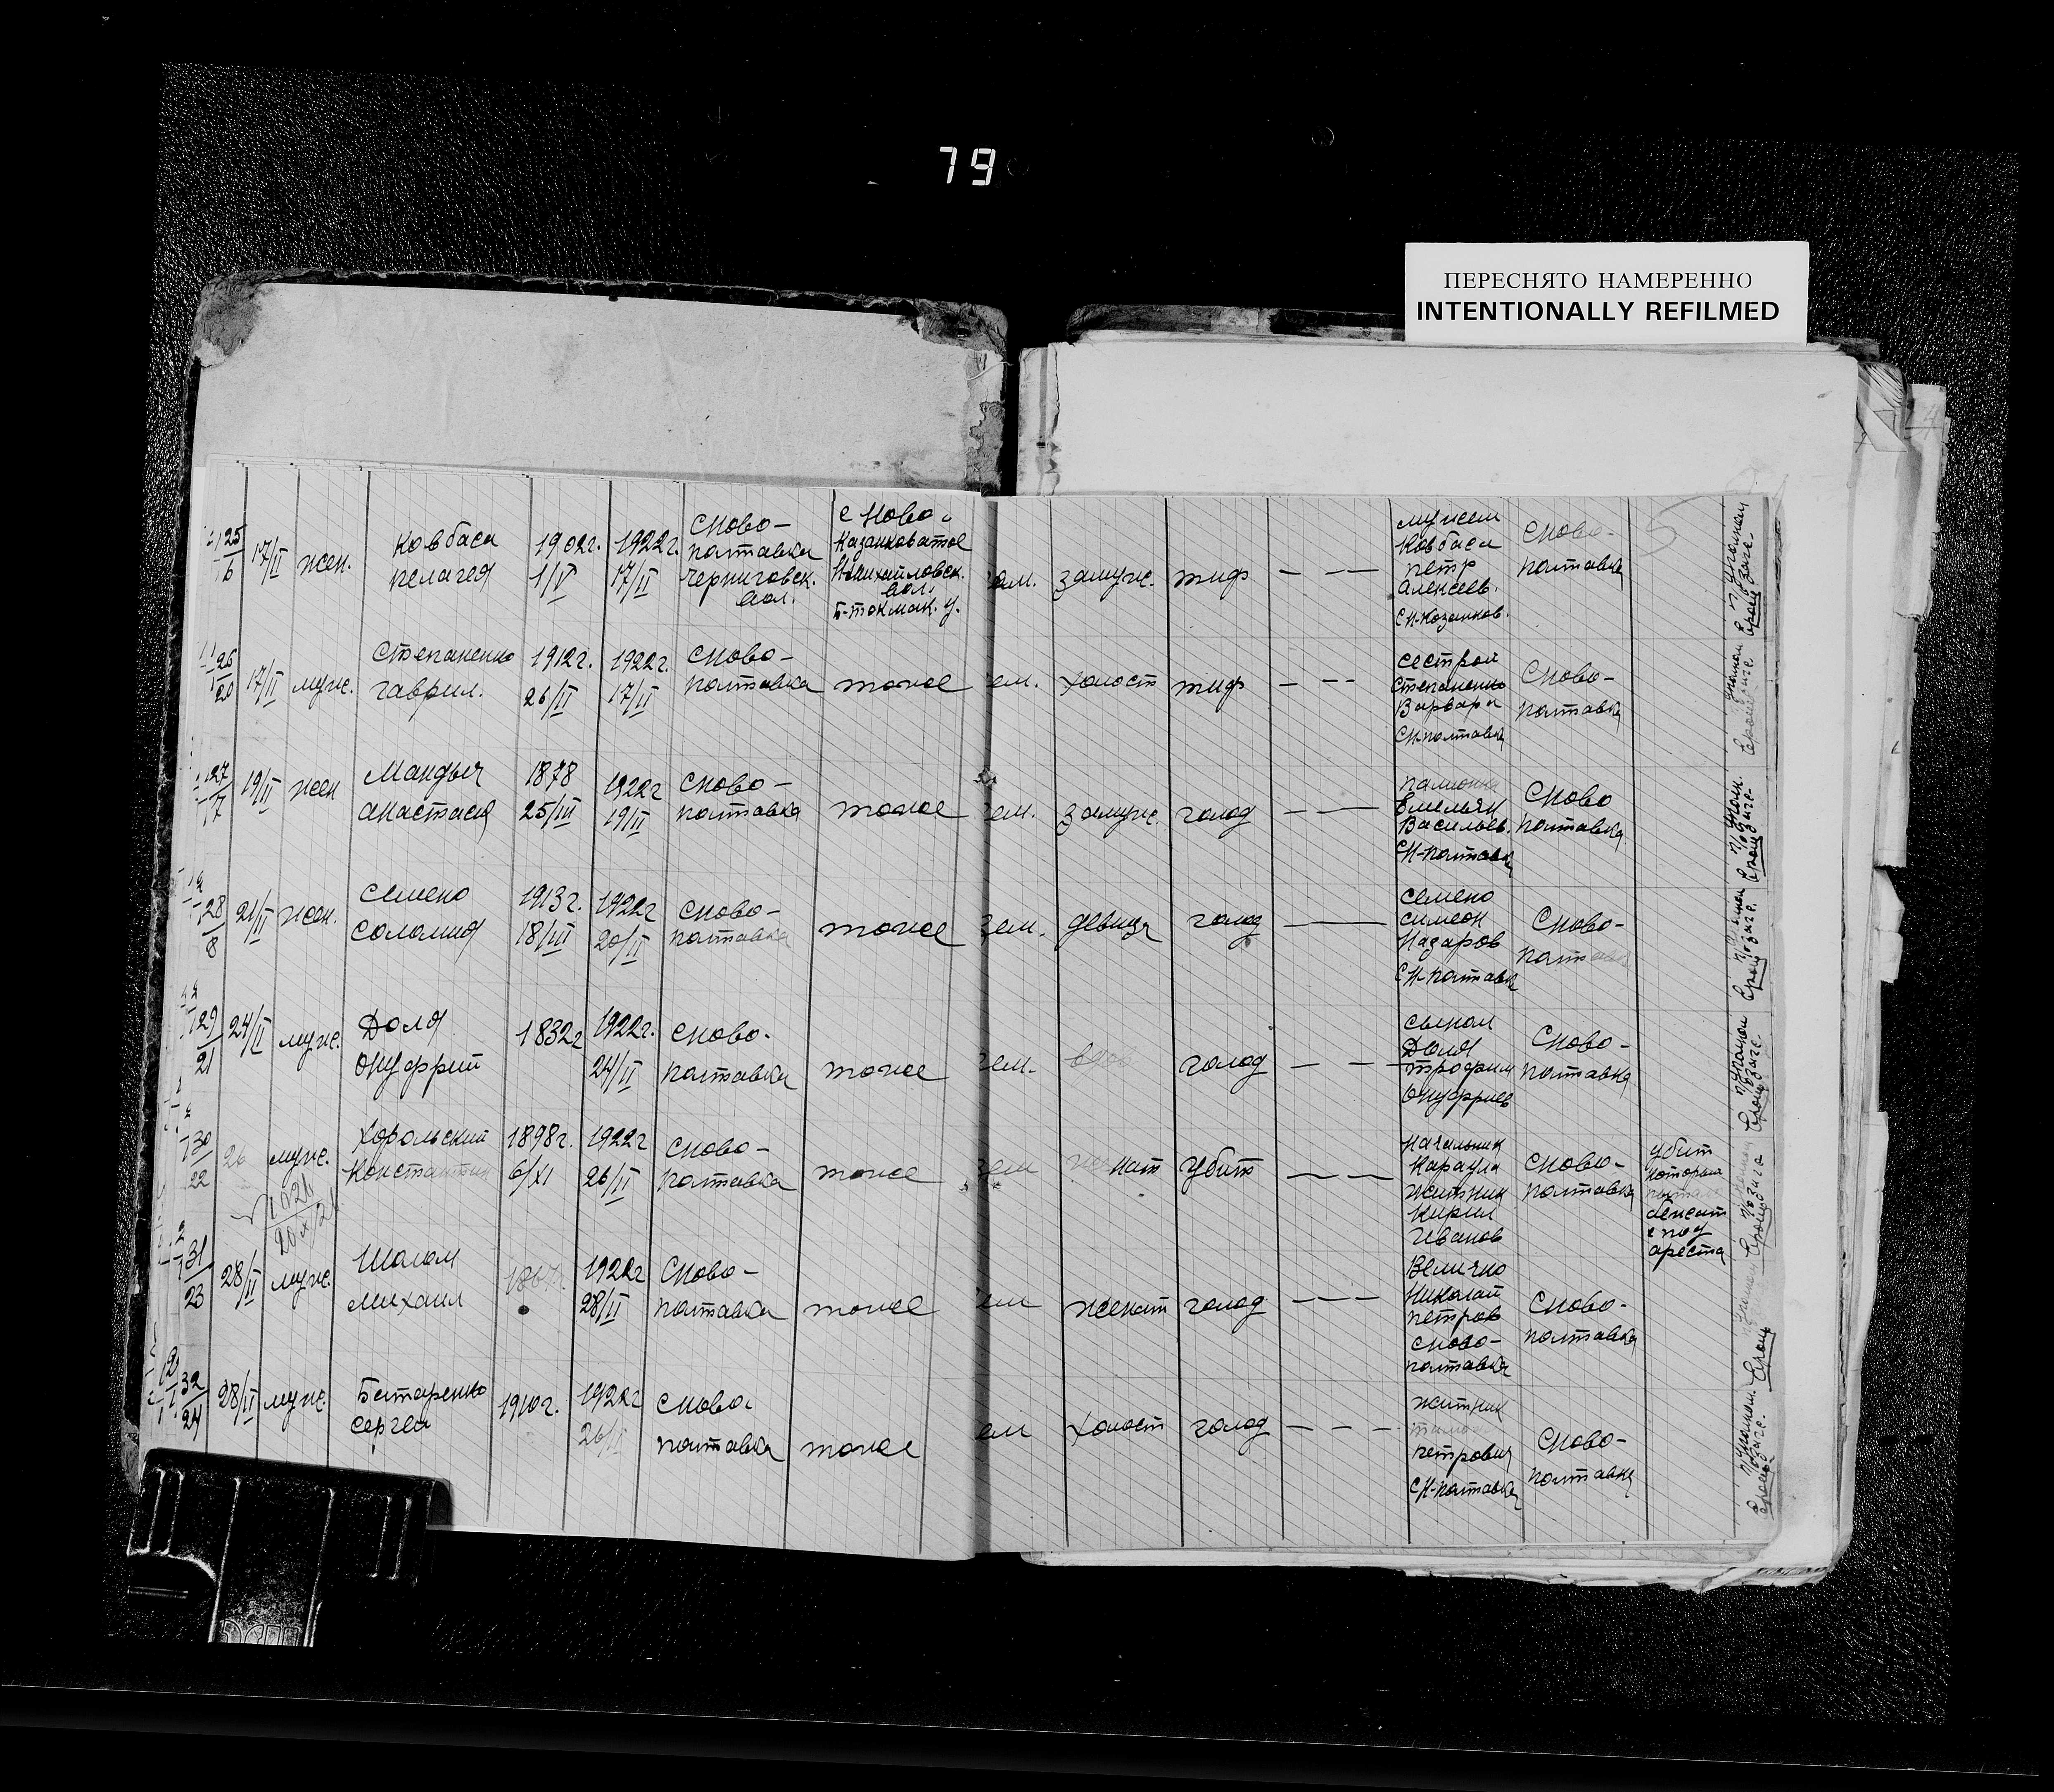 79
ПЕРЕСНЯТО НАМЕРЕННО
INTENTIONALLY REFILMED
5
25/16 17/II жен. Ковбаса Пелагея 1902г. 1/V 1922г. 17/II С Ново-Полтавка Черниговск. вол. С Ново-Казанковатое Н-Михайловск. вол. Б-Токмак. у. зем. замуж. тиф — — — мужем Ковбаса Петр Алексеев. С Н-Козанков. С Ново-Полтавка
26/20 17/II муж. Степаненко Гаврил. 1912г. 26/II 1922г. 17/II С Ново-Полтавка тоже зем. холост тиф — — — сестрой Степаненко Варвара С Н-Полтавка С Ново-Полтавка
27/17 19/II жен Мандыч Анастасия 1878 25/III 1922г 19/II С Ново-Полтавка тоже зем. замуж. голод — — Емельян Васильев. С Н-Полтавка С Ново Полтавка
28/8 21/II жен. Семено Соломия 1913г. 18/III 1922г 20/II С Ново-Полтавка тоже зем. девица голод — — Семено Симеон Назаров С Н-Полтавка С Ново-Полтавка
29/21 24/II муж. Доля Онуфрий 1832г 1922г. 24/II С Ново-Полтавка тоже зем. голод — — сыном Доля Трофим Онуфриев С Ново-Полтавка
30/22 26 муж. Хорольский Константин 1898г. 6/XI 1922г 26/II С Ново-Полтавка тоже зем женат убит — — — Начальник Караула Житник Кирил Иванов С Ново-Полтавка убит который бежать с под ареста
31/23 28/II муж. Шалам Михаил 1922г 28/II С Ново-Полтавка тоже зем женат голод — — — Величко Николай Петров С Ново-Полтавка С Ново-Полтавка
32/24 28/II муж. Батаренко Сергей 1910г. 1922г 26/II С Ново-Полтавка тоже зем холост голод — — — Житник Петрович С Н-Полтавка С Ново-Полтавка